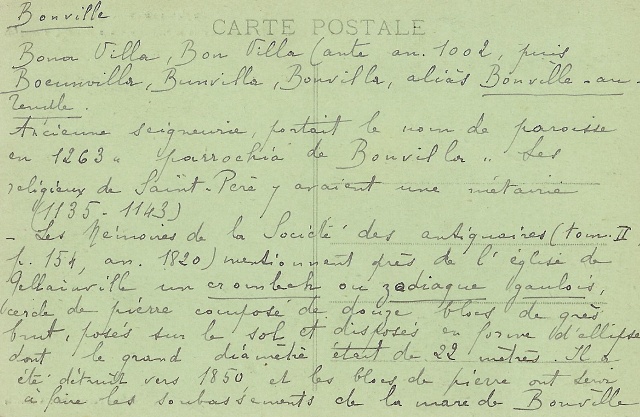 Bonville
CARTE POSTALE
Bona Villa, Bon Villa (ante an. 1002, puis
Boenvilla, Bunvilla, Bonvilla, aliàs Bonville-au-
Temple.
Ancienne seigneurie, portait le nom de paroisse
en 1263 " parrochia de Bonvilla ". Les
religieux de Saint-Père y avaient une métairie
(1135-1143)
- Les Mémoires de la Société des antiquaires (tom. II
p. 154, an. 1820) mentionnent près de l'église de
Gellainville un cromlech ou zodiaque gaulois,
cercle de pierre composé de douze blocs de grès
brut, posés sur le sol et disposés en forme d'ellipse
dont le grand diamètre était de 22 mètres. Il a
été détruit vers 1850 et les blocs de pierre ont servi
à faire les soubassements de la mare de Bonville